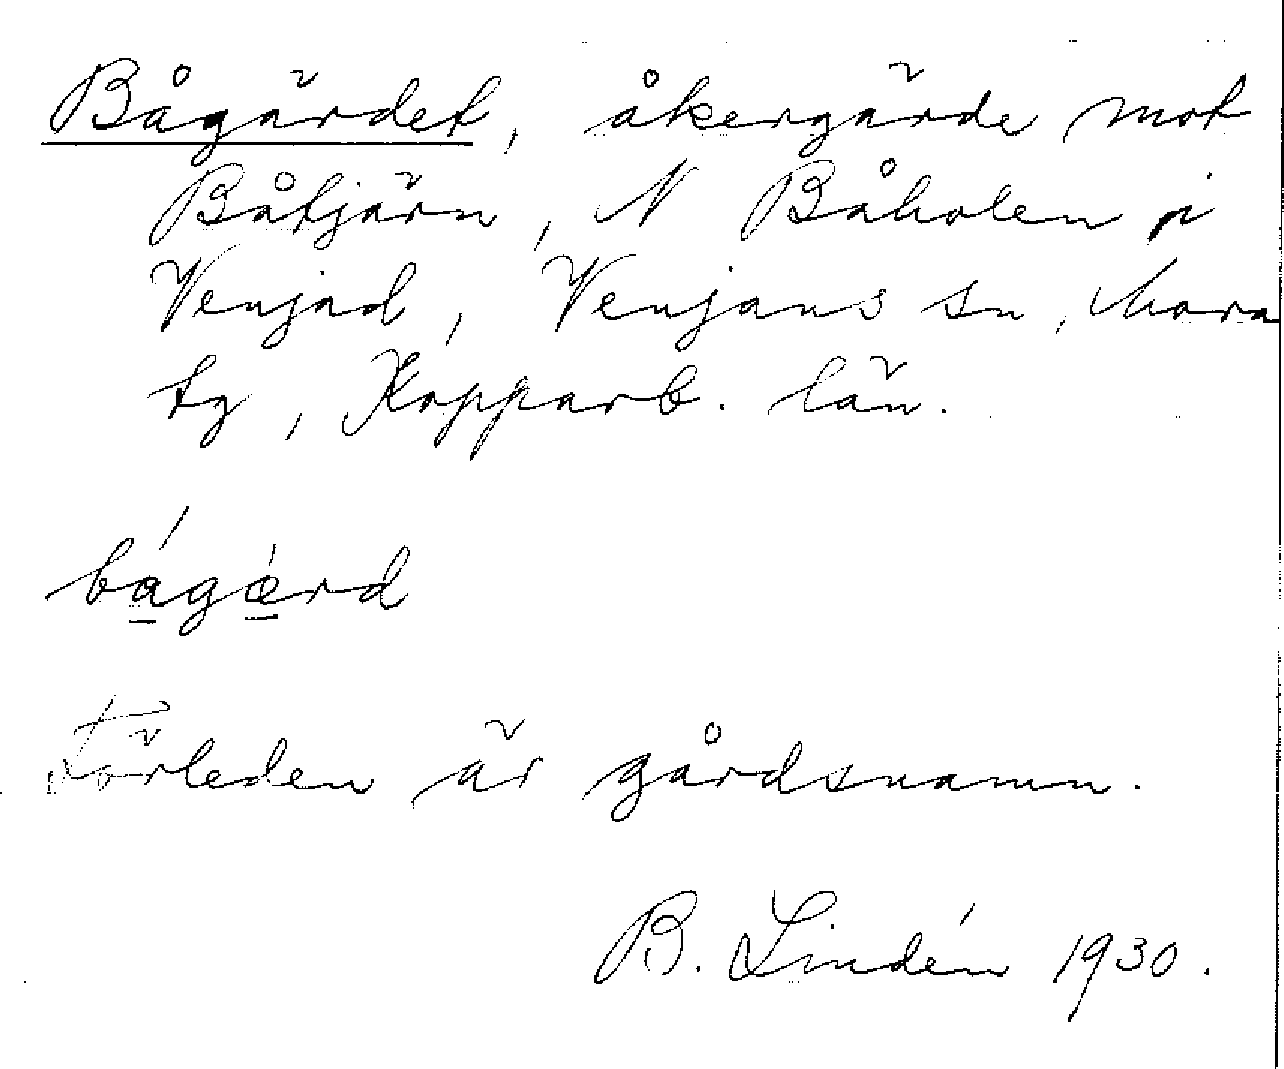 Bågärdet, åkergärde mot
Båtjärn, N Båholen i
Venjad, Venjans sn, Mora
tg, Kopparb. län.
bágǽrd
Förleden är gårdsnamn.
B. Lindén 1930.